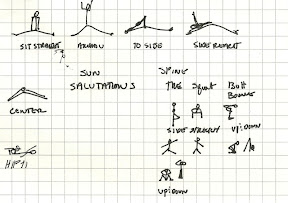 SIT STRAIGHT
TO SIDE
SIDE REPEAT
SUN
SALUTATIONS
SPINE
CENTER
SQUAT
BUTT
BOUNCE
SIDE STRAIGHT UP/DOWN
UP/DOWN